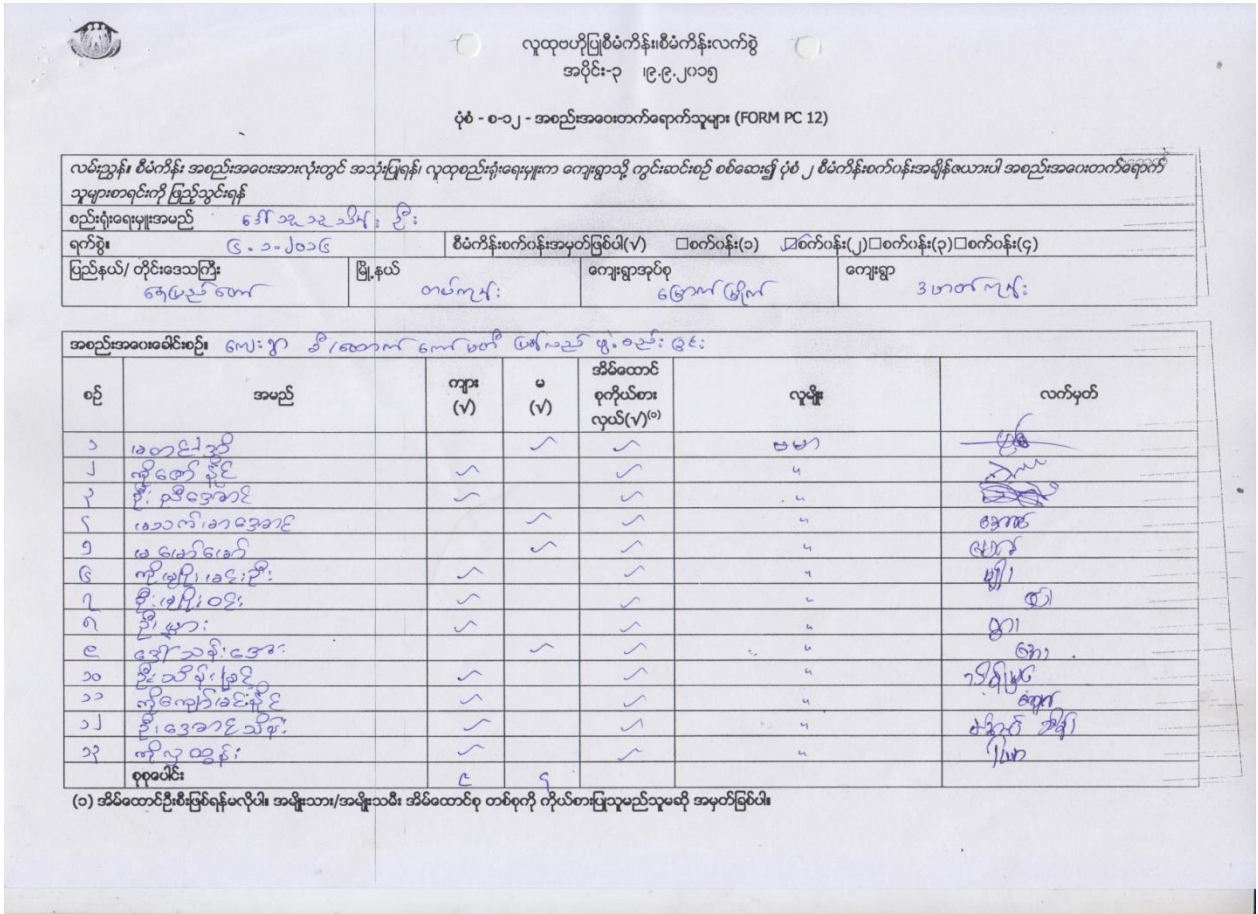 လူထုဗဟိုပြုစီမံကိန်း၊စီမံကိန်းလက်စွဲ
အပိုင်း-၃ ၊၉.၉.၂၀၁၅
ပုံစံ - စ-၁၂ - အစည်းအဝေးတက်ရောက်သူများ (FORM PC 12)
လမ်းညွှန်။ စီမံကိန်း အစည်းအဝေးအားလုံးတွင် အသုံးပြုရန်၊ လူထုစည်းရုံးရေးမှူးက ကျေးရွာသို့ ကွင်းဆင်းစဉ် စစ်ဆေး၍ ပုံစံ ၂ စီမံကိန်းစက်ဝန်းအချိန်ဇယားပါ အစည်းအဝေးတက်ရောက်
သူများစာရင်းကို ဖြည့်သွင်းရန်
စည်းရုံးရေးမှူးအမည် ဒေါ်သူသူသိမ့်ဦး
ရက်စွဲ။ ၆.၁.၂၀၁၆ စီမံကိန်းစက်ဝန်းအမှတ်ဖြစ်ပါ(√) □စက်ဝန်း(၁) ☑စက်ဝန်း(၂)□စက်ဝန်း(၃)□စက်ဝန်း(၄)
ပြည်နယ်/ တိုင်းဒေသကြီး မြို့နယ် ကျေးရွာအုပ်စု ကျေးရွာ
နေပြည်တော် တပ်ကုန်း မြောက်မြိုက်
အစည်းအဝေးခေါင်းစဉ်။ ကျေးရွာ စီ/ထောက် ကော်မတီ ပြန်လည် ဖွဲ့စည်းခြင်း
စဉ် အမည် ကျား (√) မ (√) အိမ်ထောင်စုကိုယ်စားလှယ်(√)⁽¹⁾ လူမျိုး လက်မှတ်
၁ ✓ ✓ ဗမာ
၂ ကိုဇော်နိုင် ✓ ✓ "
၃ ဦးညီအောင် ✓ ✓ "
၄ မသက်မာအောင် ✓ ✓ "
၅ မမော်မော် ✓ ✓ "
၆ ကိုမျိုးမင်းဦး ✓ ✓ " မျိုး
၇ ဦးမျိုးဝင်း ✓ ✓ "
၈ ဦးမွှား ✓ ✓ "
၉ ဒေါ်သန်းအေး ✓ ✓ " အေး
၁၀ ဦးသိန်းမြင့် ✓ ✓ " သိန်းမြင့်
၁၁ ကိုကျော်မင်းနိုင် ✓ ✓ " ကျော်
၁၂ ဦးအောင်သိန်း ✓ ✓ "
၁၃ ကိုလှထွန်း ✓ ✓ "
စုစုပေါင်း ၉ ၄
(၁) အိမ်ထောင်ဦးစီးဖြစ်ရန်မလိုပါ။ အမျိုးသား/အမျိုးသမီး အိမ်ထောင်စု တစ်စုကို ကိုယ်စားပြုသူမည်သူမဆို အမှတ်ခြစ်ပါ။